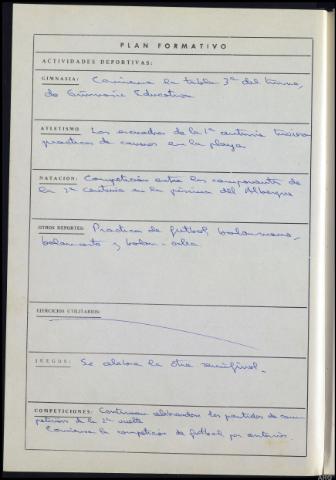 PLAN FORMATIVO
ACTIVIDADES DEPORTIVAS:
GIMNASIA: Comienza la tabla 3ª del turno,
de Gimnasia Educativa
ATLETISMO: Las escuadras de la 1ª centuria
practicas de carreras en la playa
NATACION: Competición entre los componentes de
la 2ª Centuria en la piscina del Albergue
OTROS DEPORTES: Practica de futbol, balonmano,
baloncesto y balon-volea
EJERCICIOS UTILITARIOS:
JUEGOS: Se celebra la otra semifinal.
COMPETICIONES: Continuan celebrandose los partidos de com-
peticion de la 2ª vuelta
Comienza la competición de futbol por centurias.